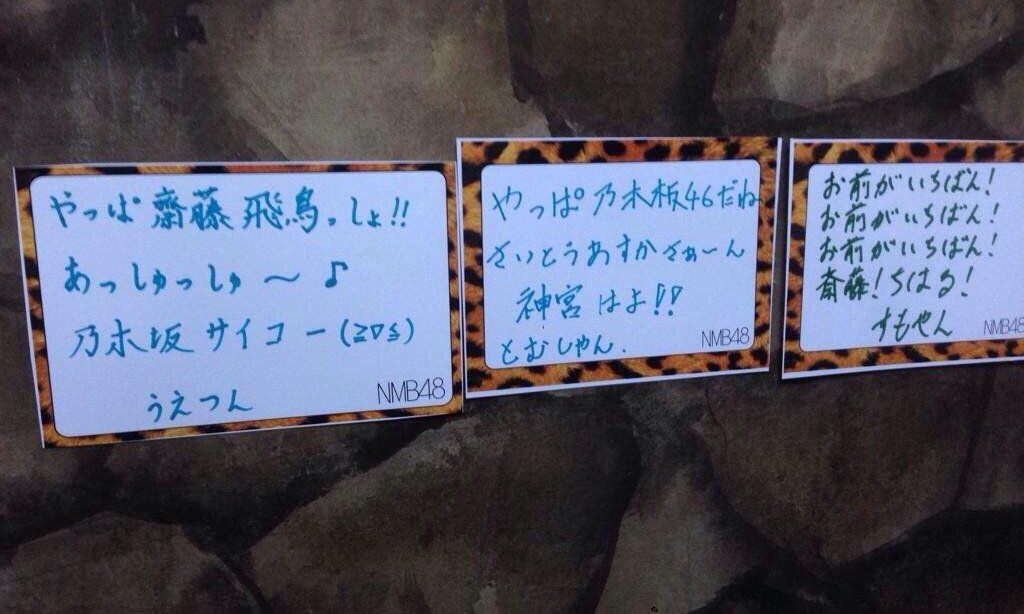 やっぱ齋藤飛鳥っしょ!!
あっしゅっしゅ～♪
乃木坂サイコー(≧▽≦)
うえつん
NMB48
やっぱ乃木板46だね
さいとうあすかさぁ～ん
神宮はよ!!
とむしゃん.
NMB48
お前がいちばん!
お前がいちばん!
お前がいちばん!
斎藤!ちはる!
すもやん
NMB48